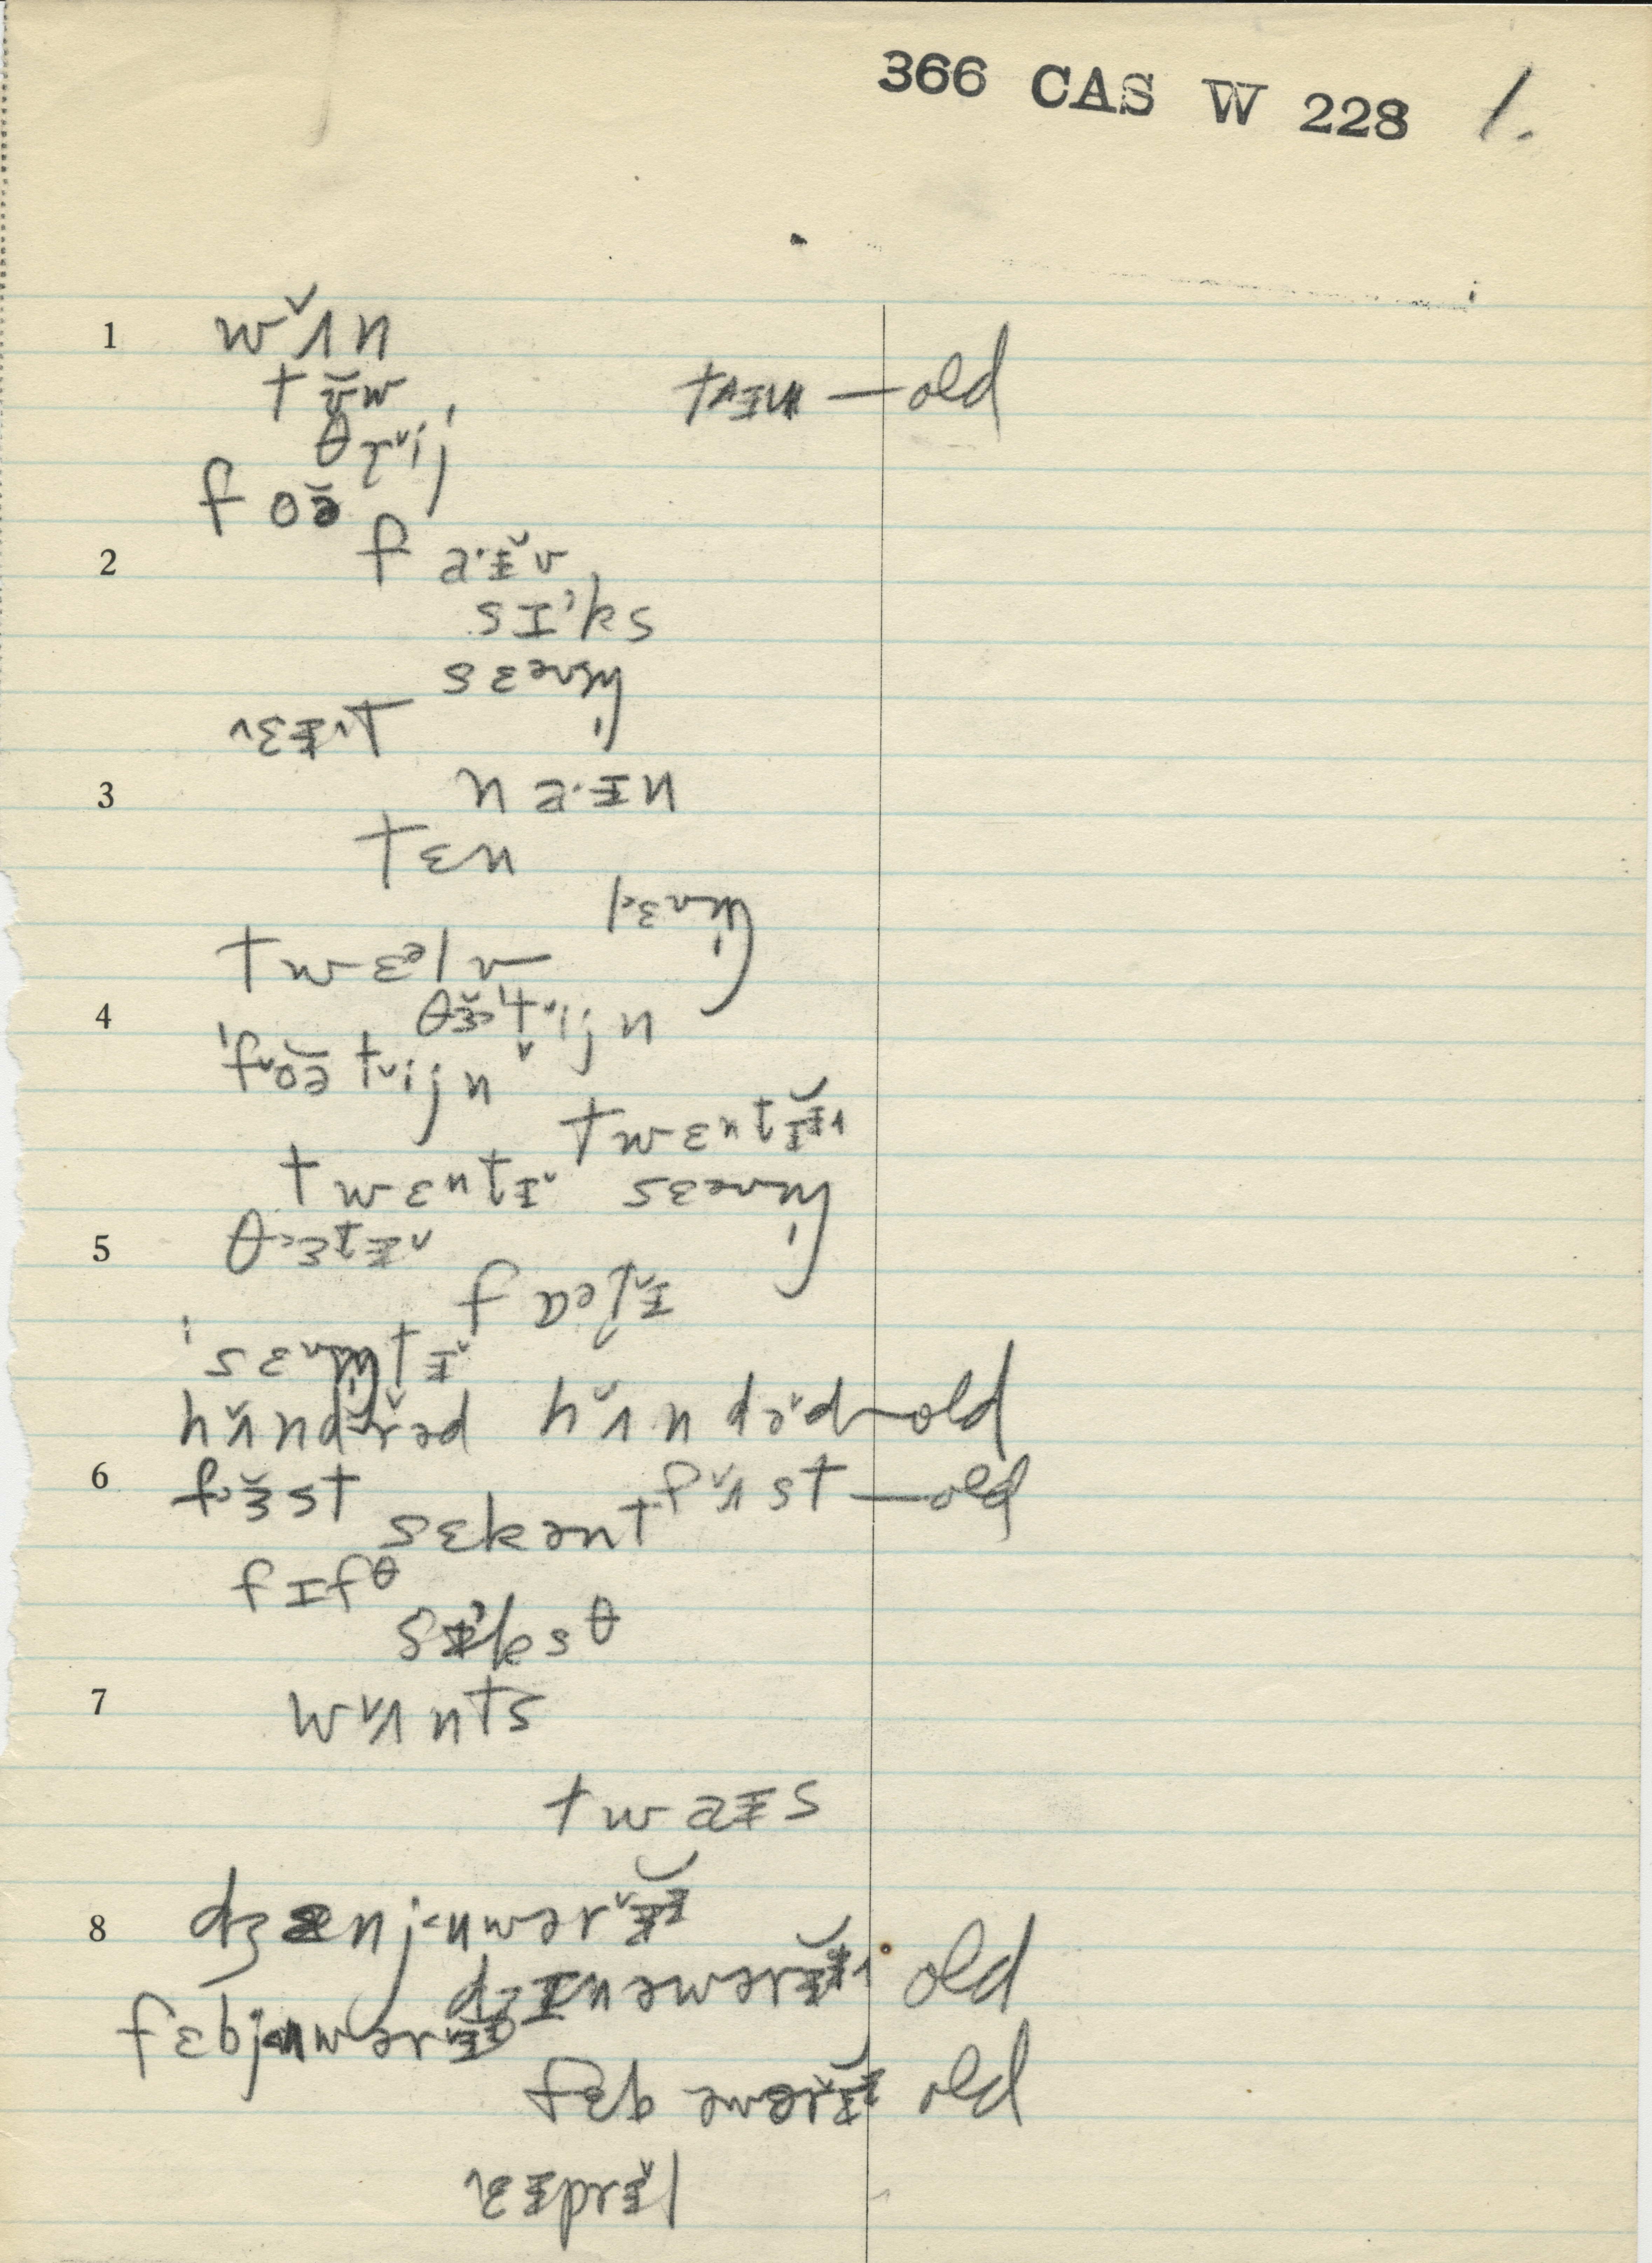 366 CAS W 228 1.
1 wˇʌn
tʊ̆w tʌɪn — old
θɽˇij
foə̆
2 fa·ɪˇv
sɪ'ks
sɛəvm̩
˄ɛɪ˄t
3 na·ɪn
tɛn
l˂ɛvm̩
twɛəlv
4 θɜ̆˞'tˇijn
'fˇoə̆tˇijn
twɛntɪ̆
twɛntɪˇ sɛəvm̩
5 θ˞ɜtɪˇ
fɒəɽˇɪ
'sɛvm̩tɪˇ
hʌ̆ndˇrəd hˇʌndəˇd — old
6 f˞ɜ̆st fˇʌst — old
sɛkənt
fɪfθ
sɪ'ksθ
7 wˇʌnts
twaɪs
8 dʒænj˂ʉwərˇɪ
dʒɪnəwərɪ̆ old
fɛbj˂ʉwərˇɪ
fɛbəwərˇɪ old
˄ɛɪprɪˇl